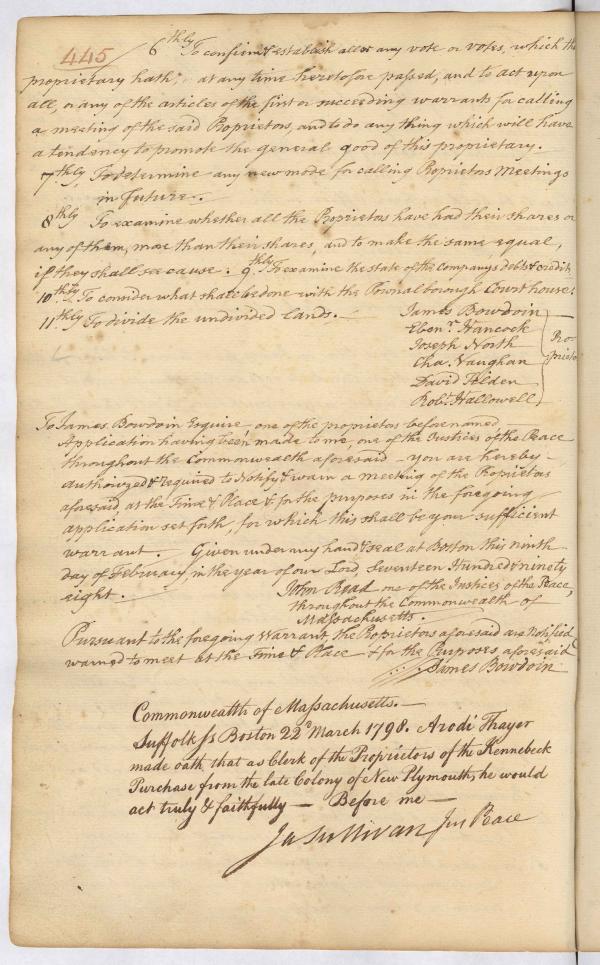 445
6thly To confirm & establish all or any vote or votes, which the
proprietary hath, at any time heretofore passed, and to act upon
all, or any of the articles of the first or succeeding warrants for calling
a meeting of the said Proprietors, and to do any thing which will have
a tendency to promote the general good of this proprietary.
7thly, To determine any new mode for calling Proprietors Meetings
in future.
8thly To examine whether all the Proprietors have had their shares or
any of them, more than their shares, and to make the same equal,
if they shall see cause. 9thly To examine the state of the Companys debts & credits
10thly To consider what shall be done with the Pownalborough Courthouse.
11thly To divide the undivided lands.
James Bowdoin
Ebenr. Hancock
Joseph North
Cha. Vaughan
David Alden
Robt. Hallowell
Pro-
prietor
To James Bowdoin Esquire, one of the proprietors before named
Application having been made to me, one of the Justices of the Peace
throughout the Commonwealth aforesaid - you are hereby -
authorized & required to Notify & warn a meeting of the Proprietors
aforesaid, at the Time & Place & for the purposes in the foregoing
application set forth, for which this shall be your sufficient
warrant. Given under my hand & seal at Boston this ninth
day of February, in the year of our Lord, seventeen Hundred & ninety
eight.
John Read one of the Justices of the Peace,
throughout the Commonwealth of
Massachusetts.
Pursuant to the foregoing Warrant, the Proprietors aforesaid are Notified
warned to meet at the Time & Place & for the Purposes aforesaid
James Bowdoin
Commonwealth of Massachusetts.—
Suffolk Ss Boston 22d March 1798. Arodi Thayer
made oath, that as Clerk of the Proprietors of the Kennebeck
Purchase from the late Colony of New Plymouth, he would
act truly & faithfully — Before me —
Ja Sullivan Jus Peace